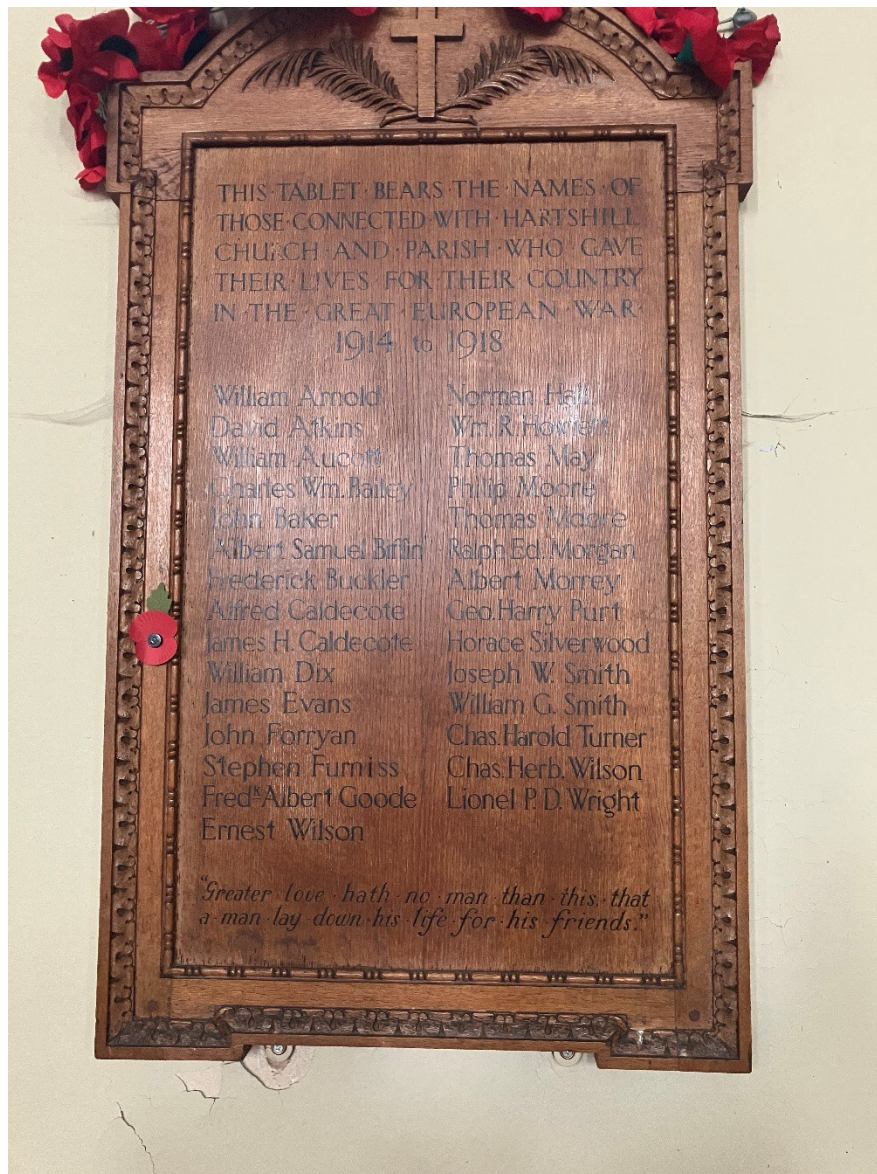 THIS·TABLET·BEARS·THE·NAMES·OF
THOSE·CONNECTED·WITH·HARTSHILL
CHURCH·AND·PARISH·WHO·GAVE
THEIR·LIVES·FOR·THEIR·COUNTRY
IN·THE·GREAT·EUROPEAN·WAR·
1914 to 1918
William Arnold
David Atkins
William Aucott
Charles Wm. Bailey
John Baker
Albert Samuel Biffin
Frederick Buckler
Alfred Caldecote
James H. Caldecote
William Dix
James Evans
John Forryan
Stephen Furniss
Fredk Albert Goode
Ernest Wilson
Norman Hall
Wm. R. Howlett
Thomas May
Philip Moore
Thomas Moore
Ralph Ed. Morgan
Albert Morrey
Geo. Harry Purt
Horace Silverwood
Joseph W. Smith
William G. Smith
Chas. Harold Turner
Chas. Herb. Wilson
Lionel P. D. Wright
"Greater·love·hath·no·man·than·this, that
a·man·lay·down·his·life·for·his·friends."